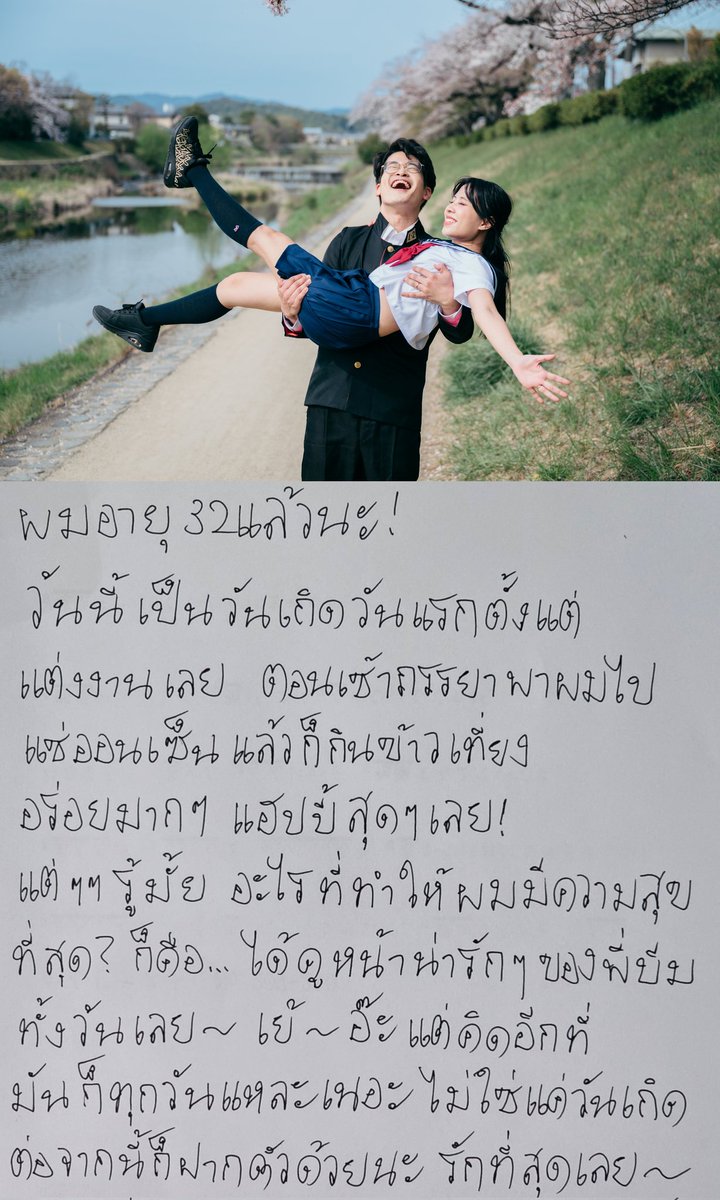 ผมอายุ 32 แล้วนะ!
วันนี้เป็นวันเกิดวันแรกตั้งแต่
แต่งงานเลย ตอนเช้าภรรยาพาผมไป
แช่ออนเซ็น แล้วก็กินข้าวเที่ยง
อร่อยมากๆ แฮปปี้สุดๆเลย!
แต่ๆๆ รู้มั้ย อะไรที่ทำให้ผมมีความสุข
ที่สุด? ก็คือ... ได้ดูหน้าน่ารักๆของพี่บีม
ทั้งวันเลย~ เย้~ อ๊ะ แต่คิดอีกที
มันก็ทุกวันแหละเนอะ ไม่ใช่แค่วันเกิด
ต่อจากนี้ก็ฝากตัวด้วยนะ รักที่สุดเลย~